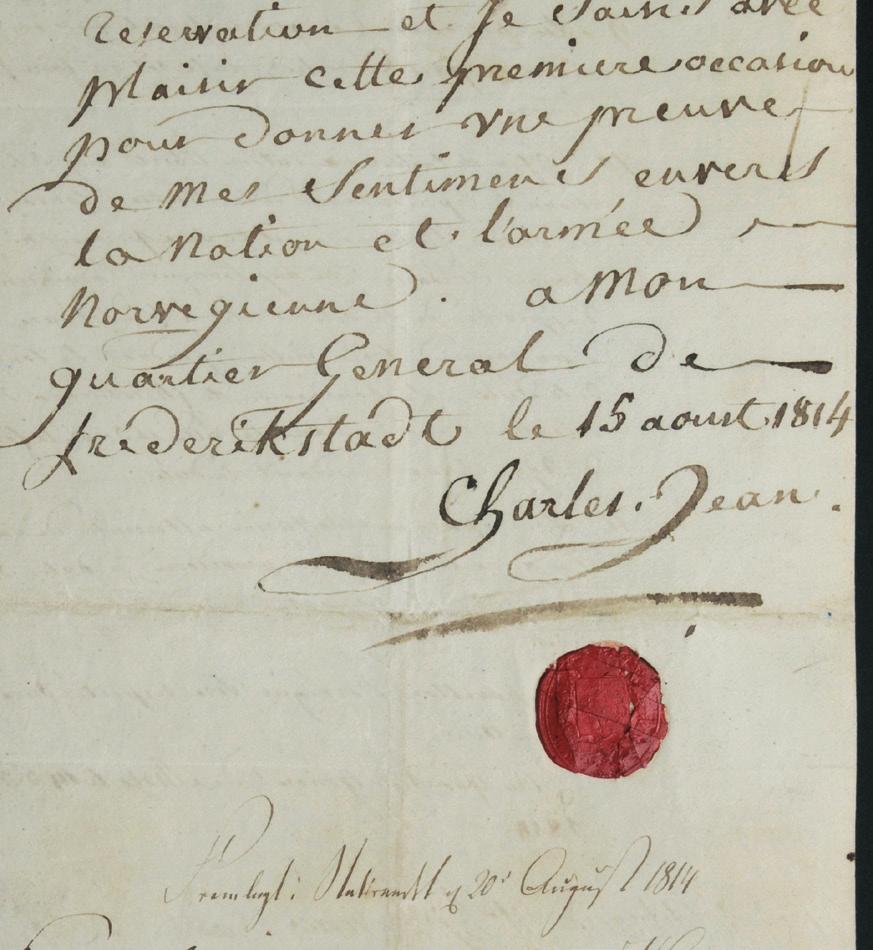 reservation et Je saisis avec
plaisir cette premiere occasion
pour donner une preuve
de Mes Sentiments envers
la Nation et l'armée
Norvegienne. a Mon
quartier General de
frederikstadt le 15 aoust 1814
Charles Jean.
Fremlagt i Statsraadet d 20d August 1814